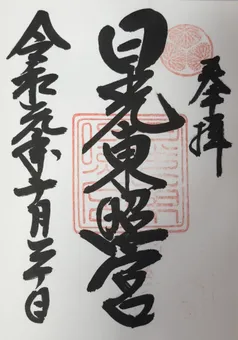 奉拝
日光東照宮
令和元年十一月二十日